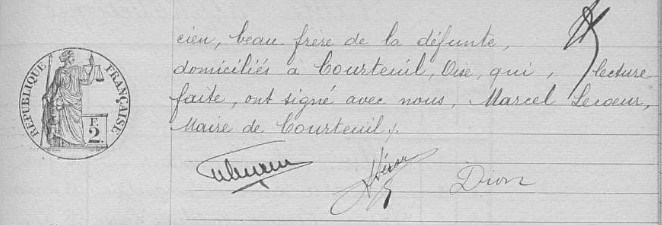 cien, beau frere de la défunte,
domiciliés à Courteuil, Oise, qui, lecture
faite, ont signé avec nous, Marcel Lecoeur,
Maire de Courteuil ;.
RÉPUBLIQUE FRANÇAISE
F.
2
Dion